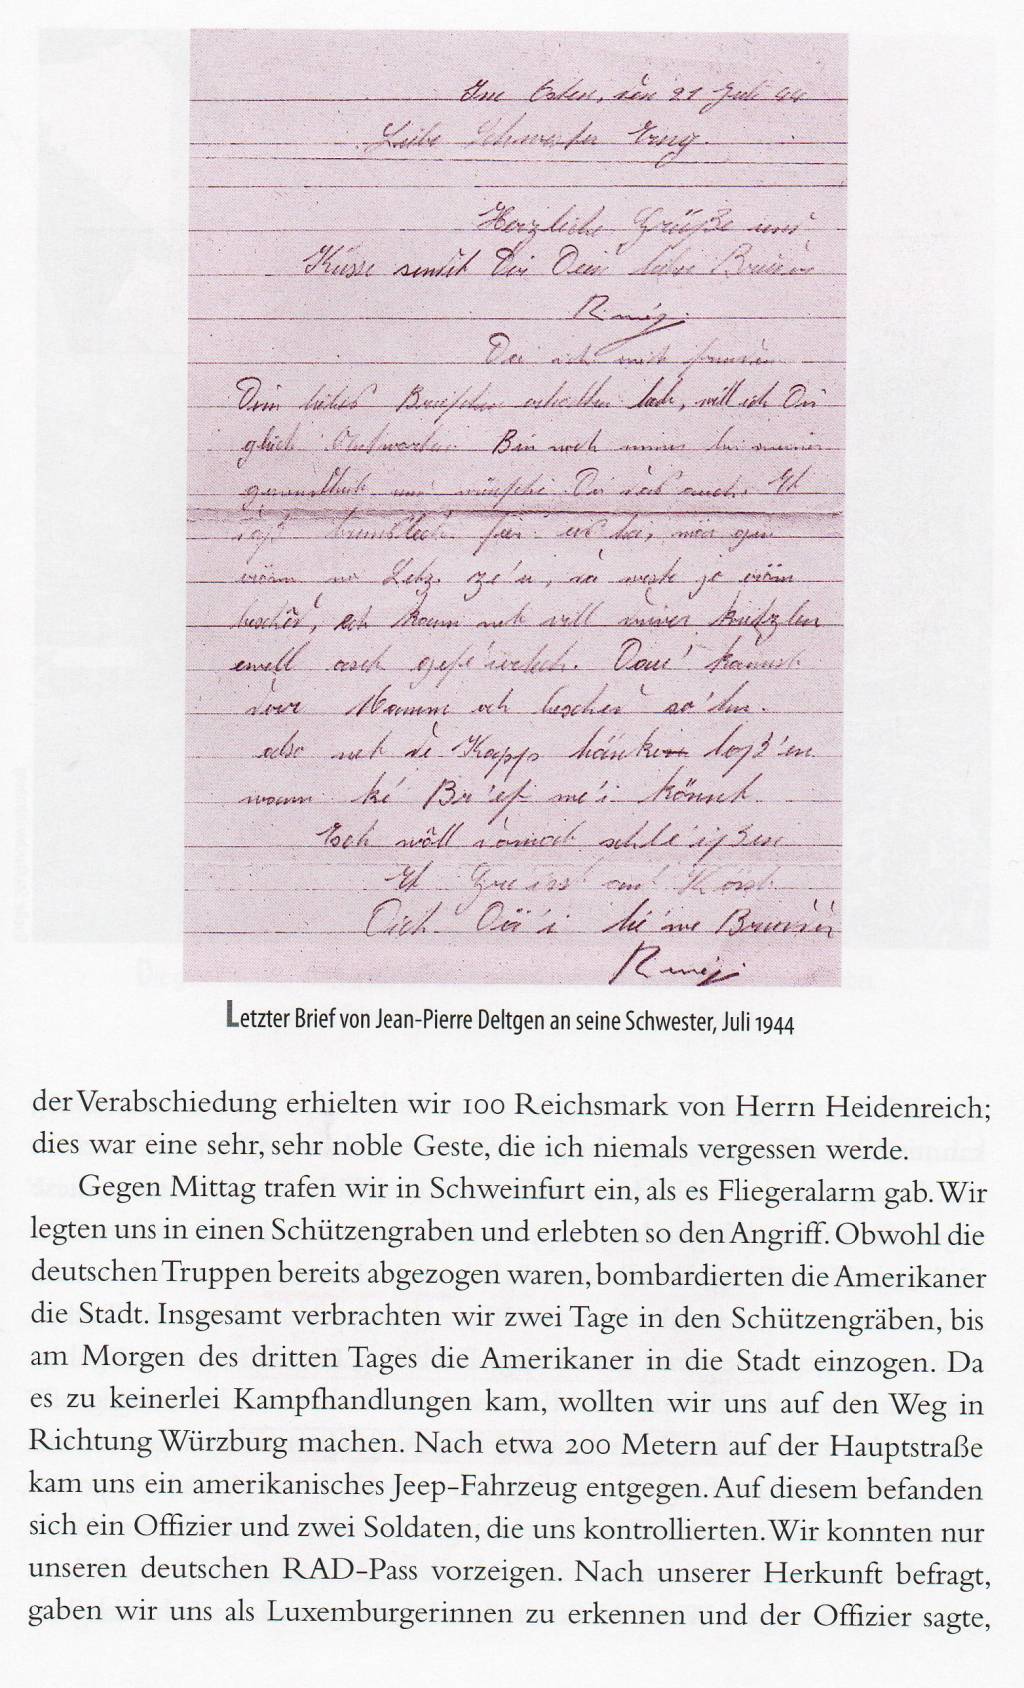 Im Osten, den 21 Juli 44
Liebe Schwester
Herzliche Grüße und
Küsse sendt Dir Dein lieber Bruder
Da ich mit freuden
Dein liebes Briefchen erhalten hab, will ich Dir
gleich Antworten. Bin noch immer bei meiner
gesundheit und wünsche Dir das auch. Et
ass
no Letz. ze'n, da weste jo
ech kann net vill kritzlen
ewell asch gefe'erlech. Dau' kanns
Mamm och so'en.
also net de Kapp hänken loss'en
wann ké Bri'ef me'i könnt.
Esch wöll schle'issen
Et Gre'isst an
Dich Däi' li'ewe Brudder
Letzter Brief von Jean-Pierre Deltgen an seine Schwester, Juli 1944
der Verabschiedung erhielten wir 100 Reichsmark von Herrn Heidenreich;
dies war eine sehr, sehr noble Geste, die ich niemals vergessen werde.
Gegen Mittag trafen wir in Schweinfurt ein, als es Fliegeralarm gab. Wir
legten uns in einen Schützengraben und erlebten so den Angriff. Obwohl die
deutschen Truppen bereits abgezogen waren, bombardierten die Amerikaner
die Stadt. Insgesamt verbrachten wir zwei Tage in den Schützengräben, bis
am Morgen des dritten Tages die Amerikaner in die Stadt einzogen. Da
es zu keinerlei Kampfhandlungen kam, wollten wir uns auf den Weg in
Richtung Würzburg machen. Nach etwa 200 Metern auf der Hauptstraße
kam uns ein amerikanisches Jeep-Fahrzeug entgegen. Auf diesem befanden
sich ein Offizier und zwei Soldaten, die uns kontrollierten. Wir konnten nur
unseren deutschen RAD-Pass vorzeigen. Nach unserer Herkunft befragt,
gaben wir uns als Luxemburgerinnen zu erkennen und der Offizier sagte,